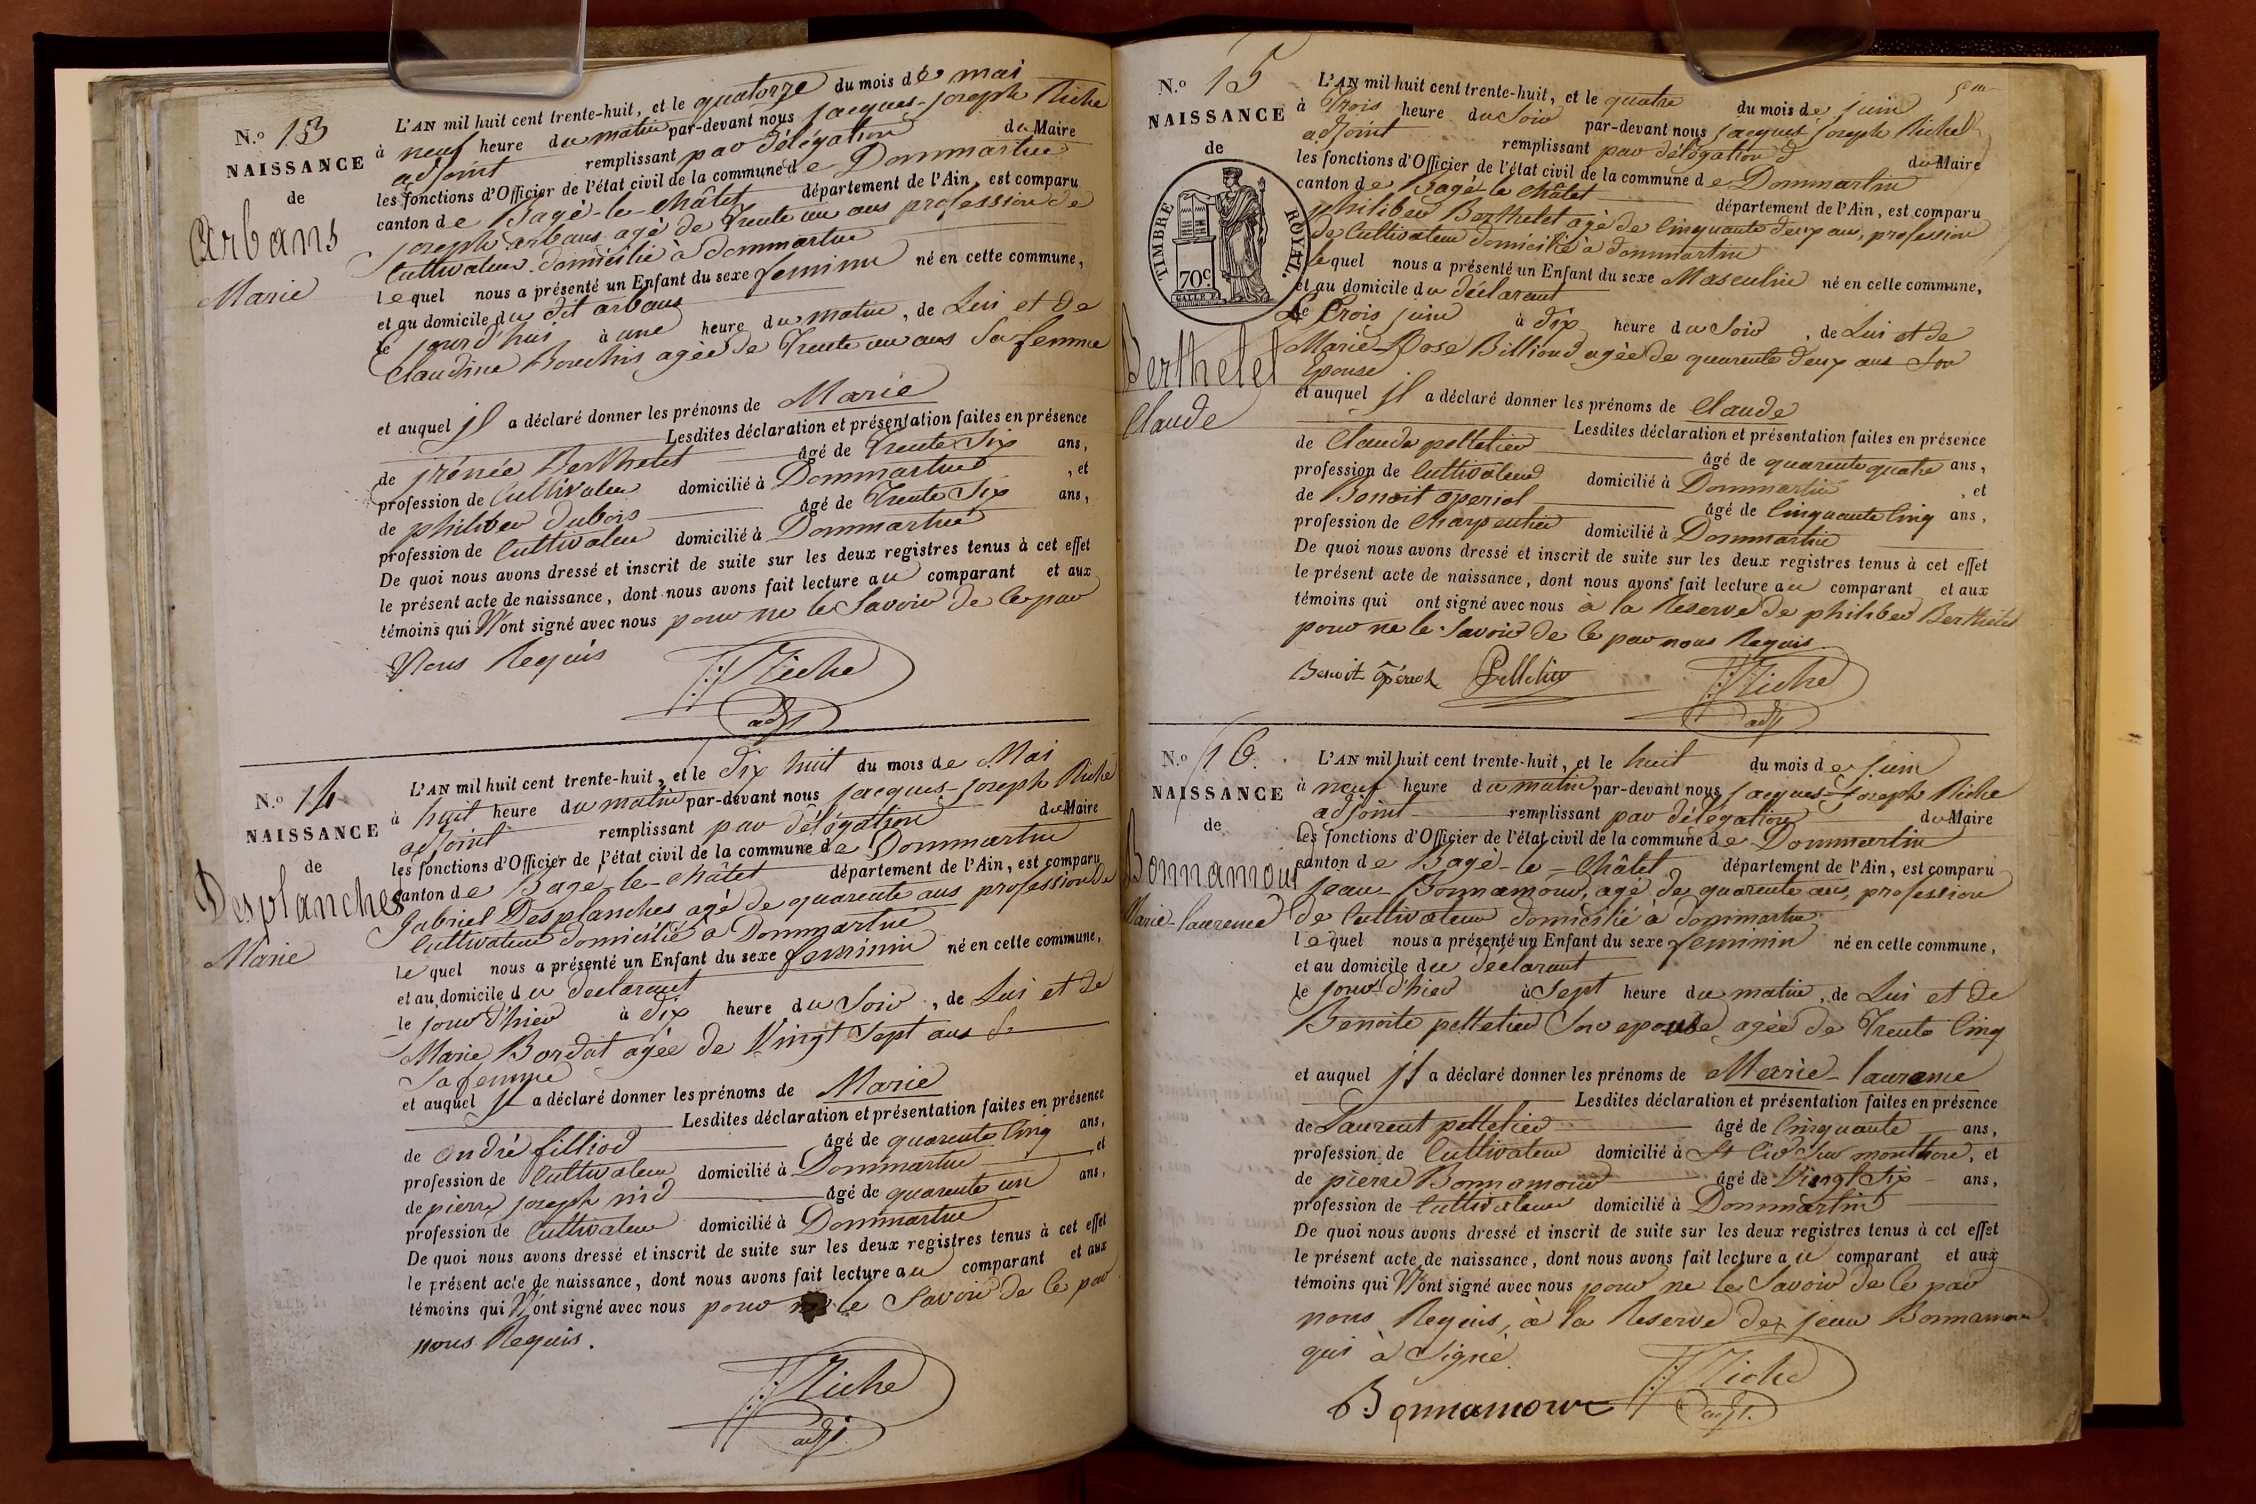 N.o 13
NAISSANCE
de
Arbans
Marie
L'AN mil huit cent trente-huit, et le quatorze du mois de mai
à neuf heure du matin par-devant nous jacques-joseph Riche
adjoint remplissant par délégation du Maire
les fonctions d'Officier de l'état civil de la commune de Dommartin
canton de Bagé-le-Châtel département de l'Ain, est comparu
joseph arbans agé de Trente un ans profession de
Cultivateur domicilié à dommartin
lequel nous a présenté un Enfant du sexe feminin né en cette commune,
et au domicile du dit arbans
le jourd'hui à une heure du matin, de Lui et de
Claudine Bouchis agée de Trente un ans Sa femme
et auquel jl a déclaré donner les prénoms de Marie
Lesdites déclaration et présentation faites en présence
de jrénée Berthelet âgé de Trente Six ans,
profession de Cultivateur domicilié à Dommartin, et
de philiber dubois âgé de Trente Six ans,
profession de Cultivateur domicilié à Dommartin
De quoi nous avons dressé et inscrit de suite sur les deux registres tenus à cet effet
le présent acte de naissance, dont nous avons fait lecture au comparant et aux
témoins qui N'ont signé avec nous pour ne le Savoir de Ce par
Nous Requis
Riche
adj
N.o 14
NAISSANCE
de
Desplanches
Marie
L'AN mil huit cent trente-huit, et le dix huit du mois de Mai
à huit heure du matin par-devant nous jacques-joseph Riche
adjoint remplissant par délégation du Maire
les fonctions d'Officier de l'état civil de la commune de Dommartin
canton de Bagé-le-Châtel département de l'Ain, est comparu
Gabriel Desplanches agé de quarente ans profession de
Cultivateur domicilié à Dommartin
lequel nous a présenté un Enfant du sexe feminin né en cette commune,
et au domicile du declarant
le jour d'hier à dix heure du Soir, de Lui et de
Marie Bordat agée de Vingt Sept ans
Sa femme
et auquel jl a déclaré donner les prénoms de Marie
Lesdites déclaration et présentation faites en présence
de andré filliod âgé de quarente Cinq ans,
profession de Cultivateur domicilié à Dommartin et
de pierre joseph nid âgé de quarente un ans,
profession de Cultivateur domicilié à Dommartin
De quoi nous avons dressé et inscrit de suite sur les deux registres tenus à cet effet
le présent acte de naissance, dont nous avons fait lecture au comparant et aux
témoins qui N'ont signé avec nous pour ne le Savoir de Ce par
nous Requis.
Riche
adj.
N.o 15
NAISSANCE
de
TIMBRE ROYAL.
70c
Berthelet
Claude
L'AN mil huit cent trente-huit, et le quatre du mois de juin
à Trois heure du Soir par-devant nous jacques joseph Riche
adjoint remplissant par délégation du Maire
les fonctions d'Officier de l'état civil de la commune de Dommartin
canton de Bagé-le Châtel département de l'Ain, est comparu
philiber Berthelet agé de Cinquante deux ans, profession
de Cultivateur domicilié à dommartin
lequel nous a présenté un Enfant du sexe Masculin né en cette commune,
et au domicile du déclarant
le Trois juin à dix heure du Soir, de Lui et de
Marie-Rose Billioud agée de quarente deux ans Son
Epouse
et auquel jl a déclaré donner les prénoms de Claude
Lesdites déclaration et présentation faites en présence
de Claude pelletier âgé de quarente quatre ans,
profession de Cultivateur domicilié à Dommartin, et
de Benoit aperiol âgé de Cinquante Cinq ans,
profession de Charpentier domicilié à Dommartin
De quoi nous avons dressé et inscrit de suite sur les deux registres tenus à cet effet
le présent acte de naissance, dont nous avons fait lecture au comparant et aux
témoins qui ont signé avec nous à la Reserve de philiber Berthelet
pour ne le Savoir de Ce par nous Requis
Benoit Pelletier Riche
adj
N.o 16.
NAISSANCE
de
Bonnamour
Marie-laurence
L'AN mil huit cent trente-huit, et le huit du mois de juin
à neuf heure du matin par-devant nous jacques-joseph Riche
adjoint remplissant par délégation du Maire
les fonctions d'Officier de l'état civil de la commune de Dommartin
canton de Bagé-le-Châtel département de l'Ain, est comparu
jean Bonnamour, agé de quarente ans, profession
de Cultivateur domicilié à dommartin
lequel nous a présenté un Enfant du sexe feminin né en cette commune,
et au domicile du declarant
le jour d'hier à Sept heure du matin, de Lui et de
Benoite pelletier Son epouse agée de Trente Cinq
et auquel jl a déclaré donner les prénoms de Marie-laurence
Lesdites déclaration et présentation faites en présence
de Laurent pelletier âgé de Cinquante ans,
profession de Cultivateur domicilié à St Cir Sur menthon, et
de pierre Bonnamour âgé de Vingt Six ans,
profession de Cultivateur domicilié à Dommartin
De quoi nous avons dressé et inscrit de suite sur les deux registres tenus à cet effet
le présent acte de naissance, dont nous avons fait lecture au comparant et aux
témoins qui N'ont signé avec nous pour ne le Savoir de Ce par
nous Requis, à la Reserve de jean Bonnamour
qui à Signé.
Bonnamour Riche
adj.